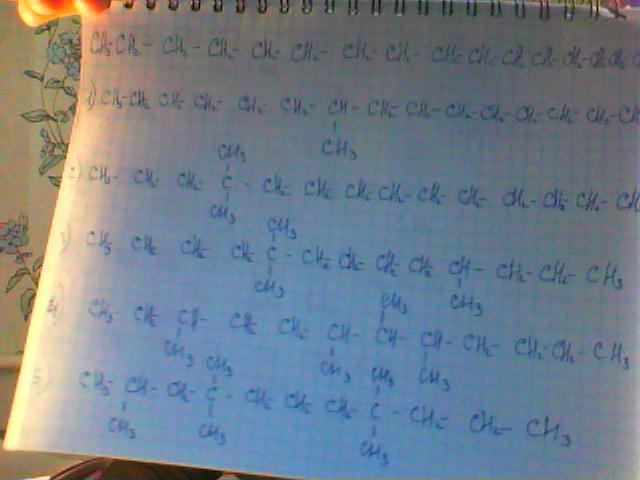 CH3 CH2 - CH2 - CH2 - CH2 - CH2 - CH2 - CH2 - CH2 - CH2 - CH2 - CH2 - CH2 - CH2 - CH2 -
1) CH3 - CH2 CH2 - CH2 - CH2 - CH2 - CH - CH2 - CH2 - CH2 - CH2 - CH2 - CH2 - CH2 - CH
CH3
CH3
2) CH3 - CH2 CH2 C - CH2 - CH2 CH2 CH2 - CH2 - CH2 - CH2 - CH2 - CH2 - CH
CH3
CH3
3) CH3 CH2 CH2 CH2 C - CH2 CH2 - CH2 CH2 CH - CH2 - CH2 - CH3
CH3 CH3
CH3
4) CH3 - CH2 CH - CH2 CH2 - CH - CH - CH - CH2 - CH2 - CH2 - CH3
CH3 CH3 CH3
CH3 CH3
5) CH3 - CH - CH2 - C - CH2 - CH2 CH2 - C - CH2 - CH2 - CH3
CH3 CH3 CH3